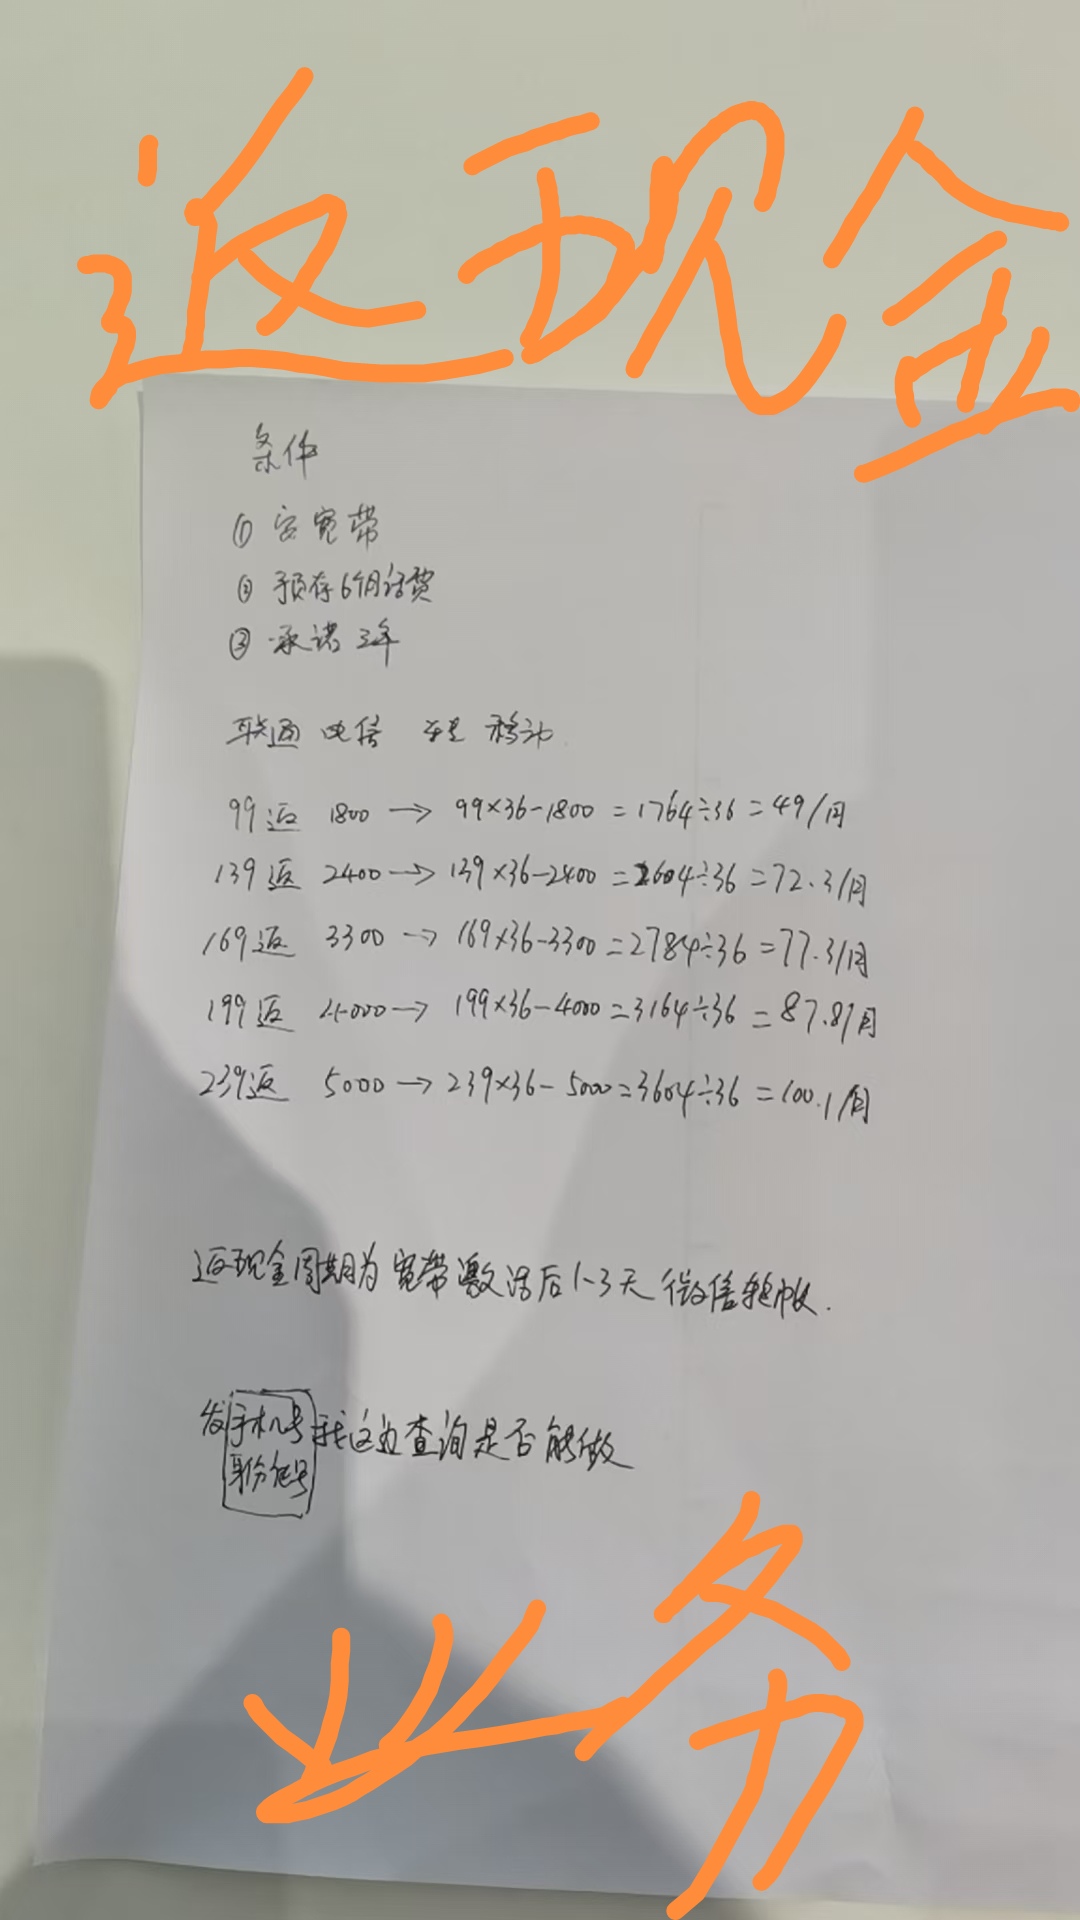 返现金
条件
① 安宽带
② 预存6个月话费
③ 承诺3年
联通 电信 转 移动
99返 1800 → 99×36-1800=1764÷36=49/月
139返 2400 → 139×36-2400=2604÷36=72.3/月
169返 3300 → 169×36-3300=2784÷36=77.3/月
199返 4000 → 199×36-4000=3164÷36=87.8/月
239返 5000 → 239×36-5000=3604÷36=100.1/月
返现金周期为宽带激活后1-3天微信转帐.
发手机号我这边查询是否能做
身份证号
业务